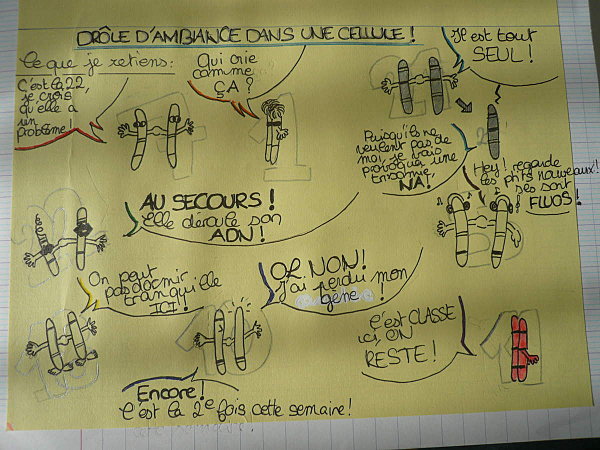 DRÔLE D'AMBIANCE DANS UNE CELLULE !
Ce que je retiens :
C'est la 22,
je crois
qu'elle a
un
problème !
Qui crie
comme
ÇA ?
Il est tout
SEUL !
Puisqu'ils ne
veulent pas de
moi, je vais
provoquer une
NA !
Hey ! regarde
les ptits nouveaux !
ils sont
FLUOS !
AU SECOURS !
Elle déroule son
ADN !
On peut
pas dormir
tranquille
ICI !
OH NON !
J'ai perdu mon
gène !
C'est CLASSE
ici, ON
RESTE !
Encore !
C'est la 2e fois cette semaine !